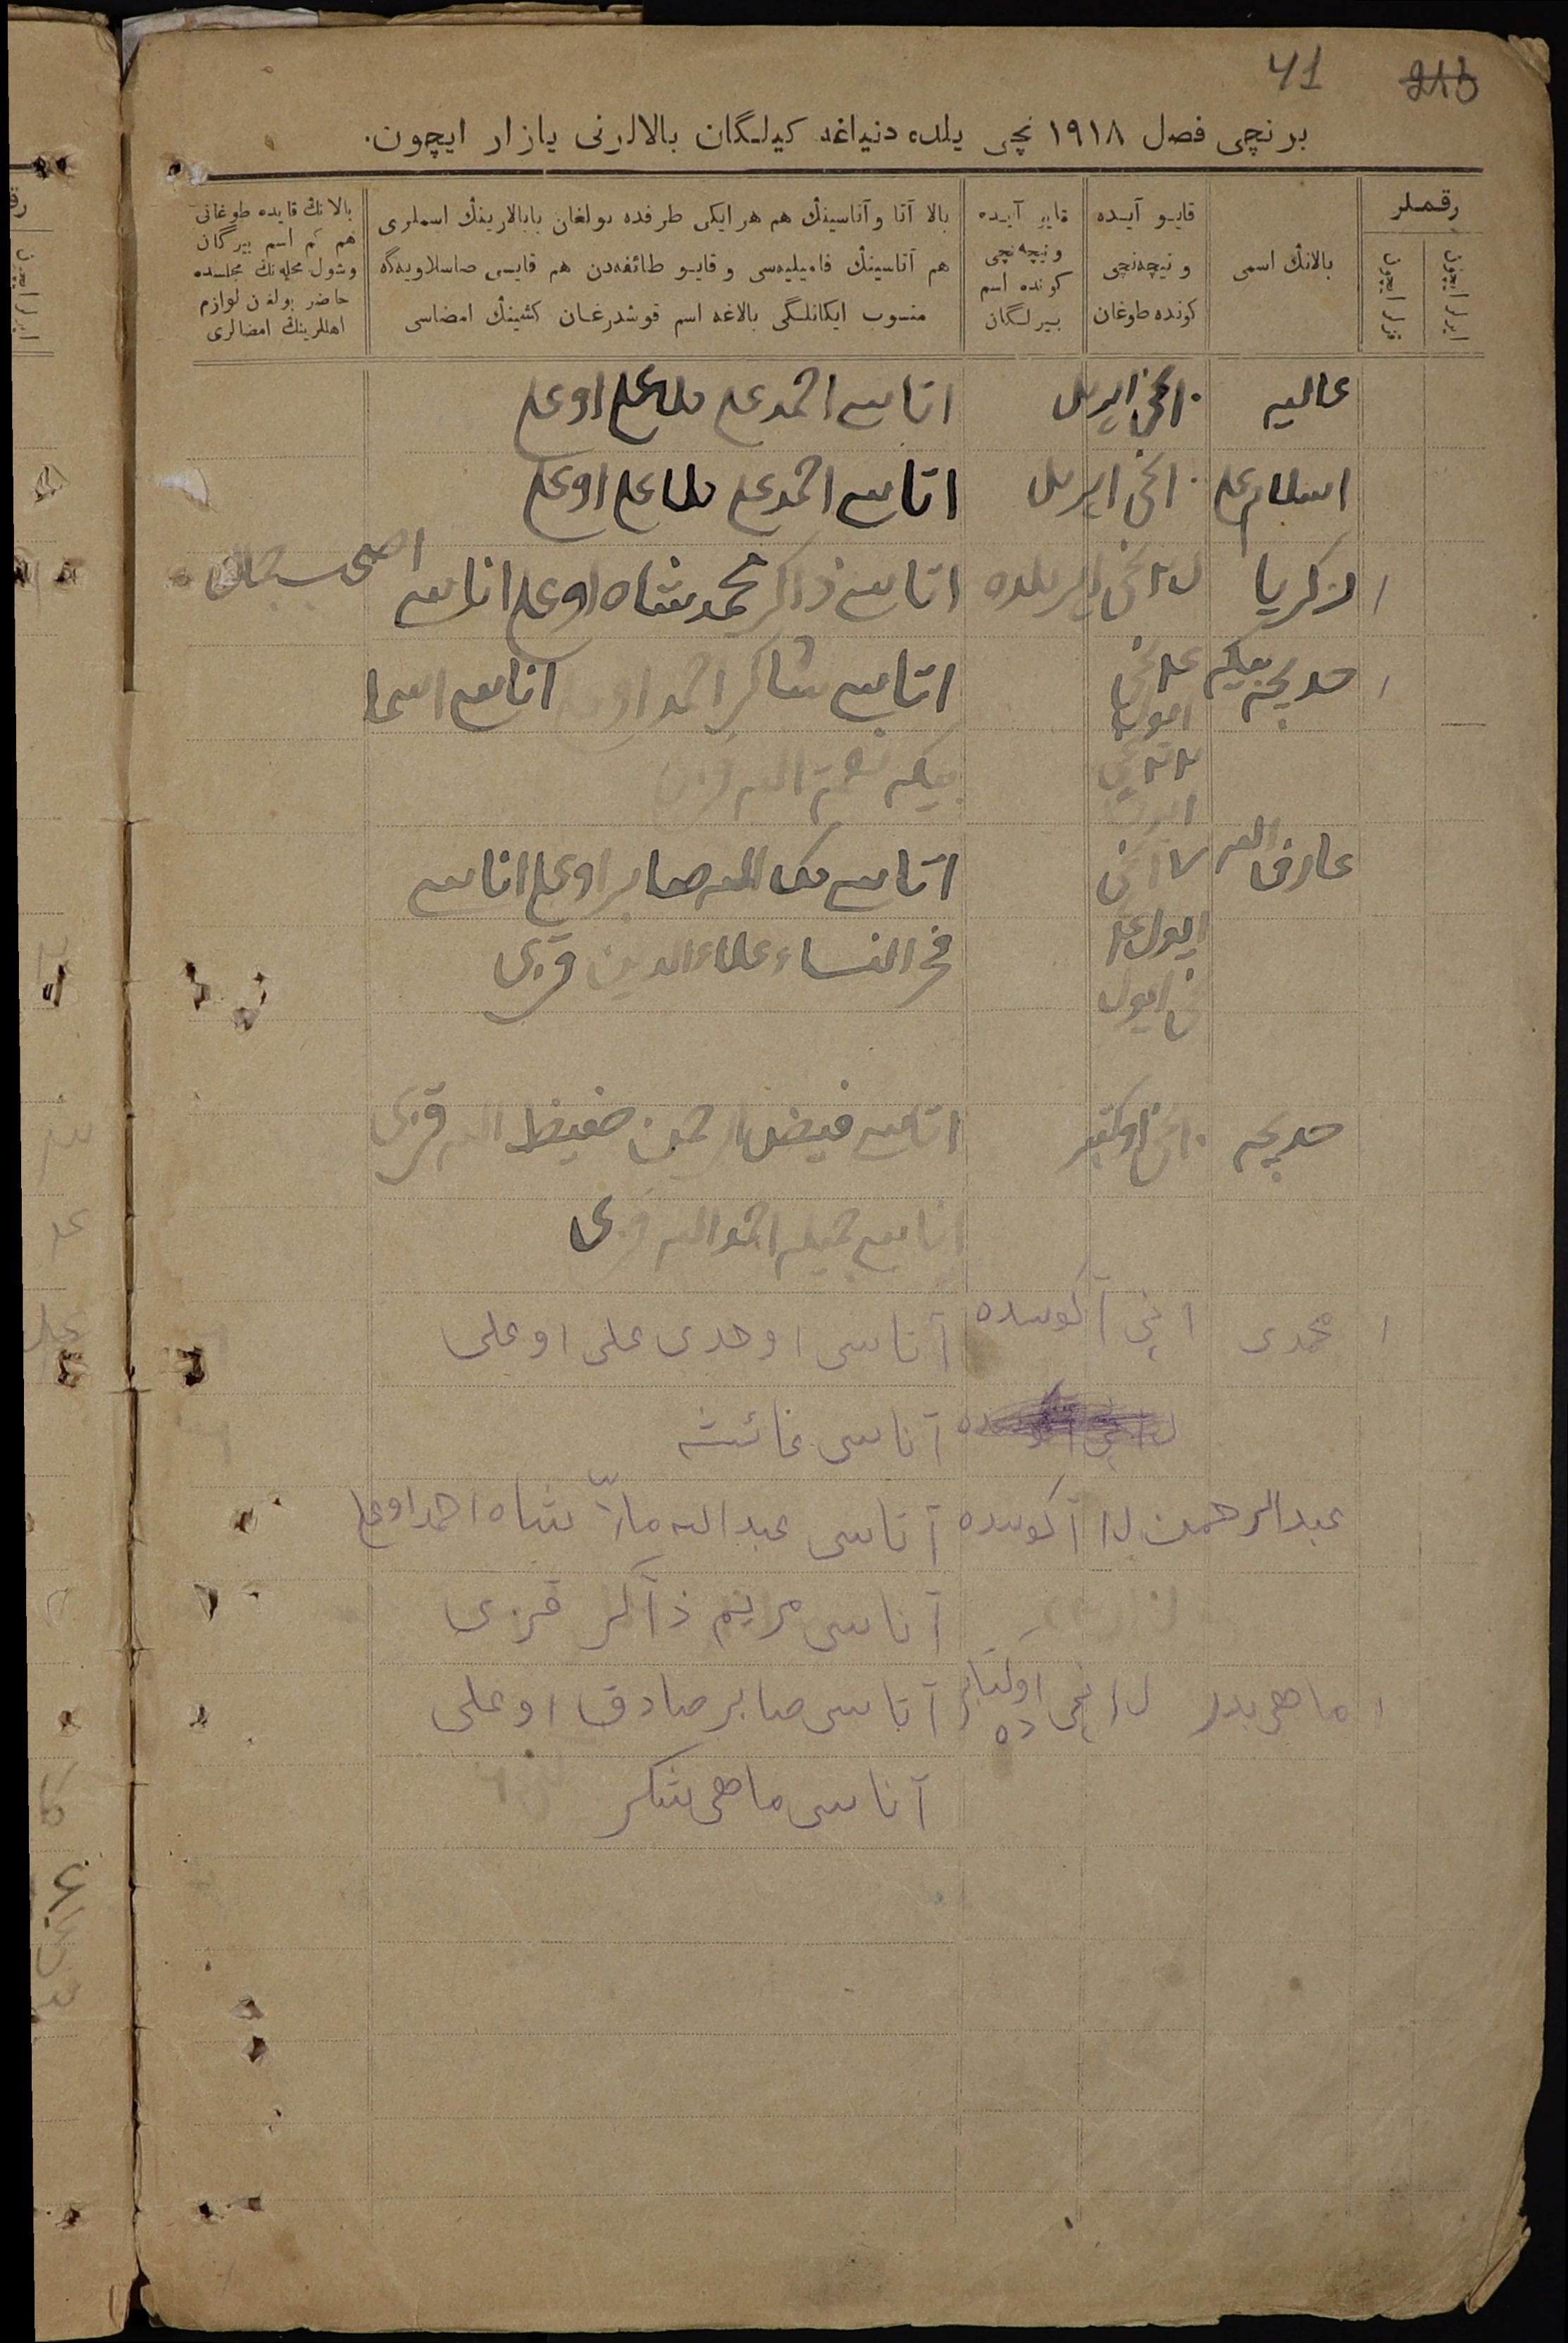 41 213
برنچی فصل ۱۹۱۸ نچی یلده دنیاغه کیلگان بالالرنی یازار ایچون.
رقملر
ایرلر ایچون
قزلر ایچون
بالانڭ اسمی
قایو آیده
و نیچه‌نچی
کونده طوغان
قایو آیده
و نیچه‌نچی
کونده اسم
بیرلگان
بالا آتا و آناسینڭ هم هر ایکی طرفده بولغان بابالارینڭ اسملری
هم آتاسینڭ فامیلیه‌سی و قایو طائفه‌دن هم قایسی صاسلاویه‌گه
منسوب ایکانلگی بالاغه اسم قوشدرغان کشینڭ امضاسی
بالانڭ قایده طوغانی
هم کم اسم بیرگان
وشول محله‌نڭ مجلسده
حاضر بولغن لوازم
اهللرینڭ امضالری
عالیه ۱۰نچی اپریل اتاسی احمدعلی ملاعلی اوغلی
اسلام علی ۱۰نچی اپریل اتاسی احمدعلی ملاعلی اوغلی
۱ زکریا نچی اپریلده اتاسی ذاکر محمدشاه اوغلی اناسی
۱ خدیجه بیکه نچی ایول اتاسی شاکر احمد اناسی اسما
بیکه نعمة الله قزی
عارف الله نچی ایول اتاسی ملک الله صابر اوغلی اناسی
نچی ایول فخر النساء علاءالدین قزی
خدیجه ۱۰نچی اوکتبر اتاسی فیض الرحمن حفیظ الله قزی
اناسی جمیله احمدالله قزی
۱ محمدی ۱ نچی آگوسده آتاسی اوحدی علی اوغلی
آناسی عائشه
عبدالرحمن آگوسده آتاسی عبدالله ملاّ شاه احمد اوغلی
آناسی مریم ذاکر قزی
۱ ماهی بدر نچی اوکتابرده آتاسی صابر صادق اوغلی
آناسی ماهی شکر